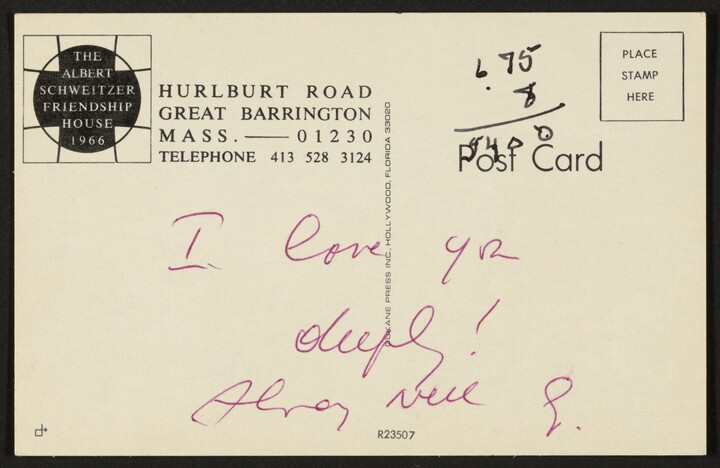 THE
ALBERT
SCHWEITZER
FRIENDSHIP
HOUSE
1966
HURLBURT ROAD
GREAT BARRINGTON
MASS. — 01230
TELEPHONE 413 528 3124
6.75
8
5400
PLACE
STAMP
HERE
Post Card
PRESS INC, HOLLYWOOD, FLORIDA 33020
I love you
deeply!
R23507